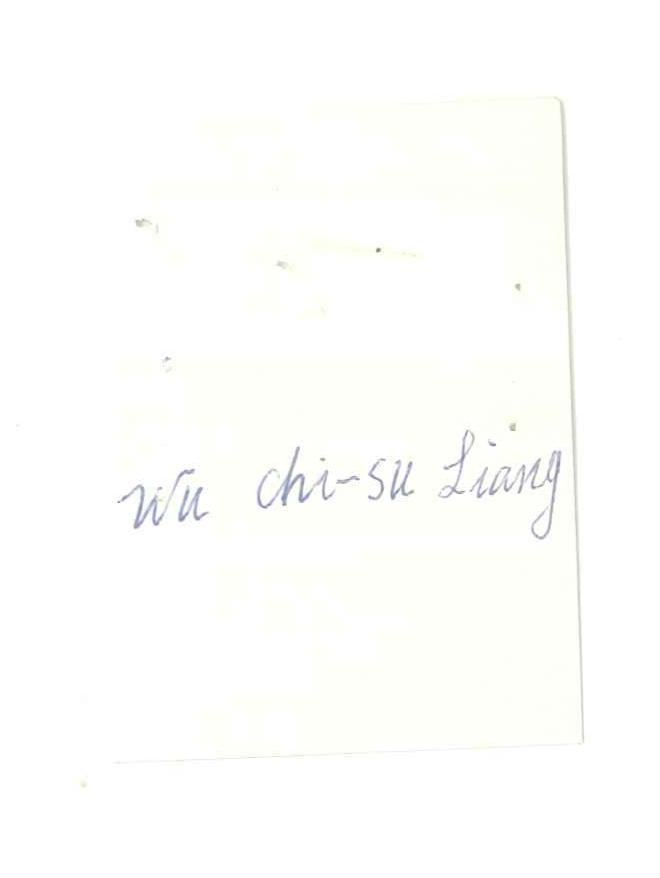 Wu Chi-su Liang